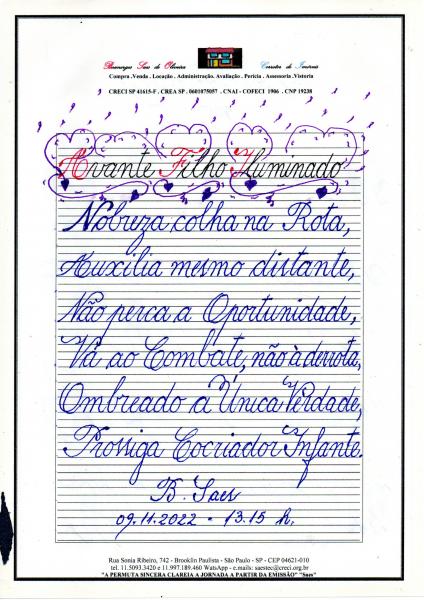 Boanerges Saes de Oliveira Corretor de Imóveis
Compra .Venda . Locação . Administração. Avaliação . Perícia . Assessoria .Vistoria
CRECI SP 41615-F . CREA SP . 0601075057 . CNAI - COFECI 1906 . CNP 19238
Avante Filho Iluminado
Nobreza colha na Rota,
Auxilia mesmo distante,
Não perca a Oportunidade,
Vá ao Combate, não à derrota,
Ombreado a Única Verdade,
Prossiga Cocriador Infante.
B. Saes
09.11.2022 - 13.15 h.
Rua Sonia Ribeiro, 742 - Brooklin Paulista - São Paulo - SP - CEP 04621-010
tel. 11.5093.3420 e 11.997.189.460 WatsApp - e.mails: saestec@creci.org.br
"A PERMUTA SINCERA CLAREIA A JORNADA A PARTIR DA EMISSÃO" "Saes"